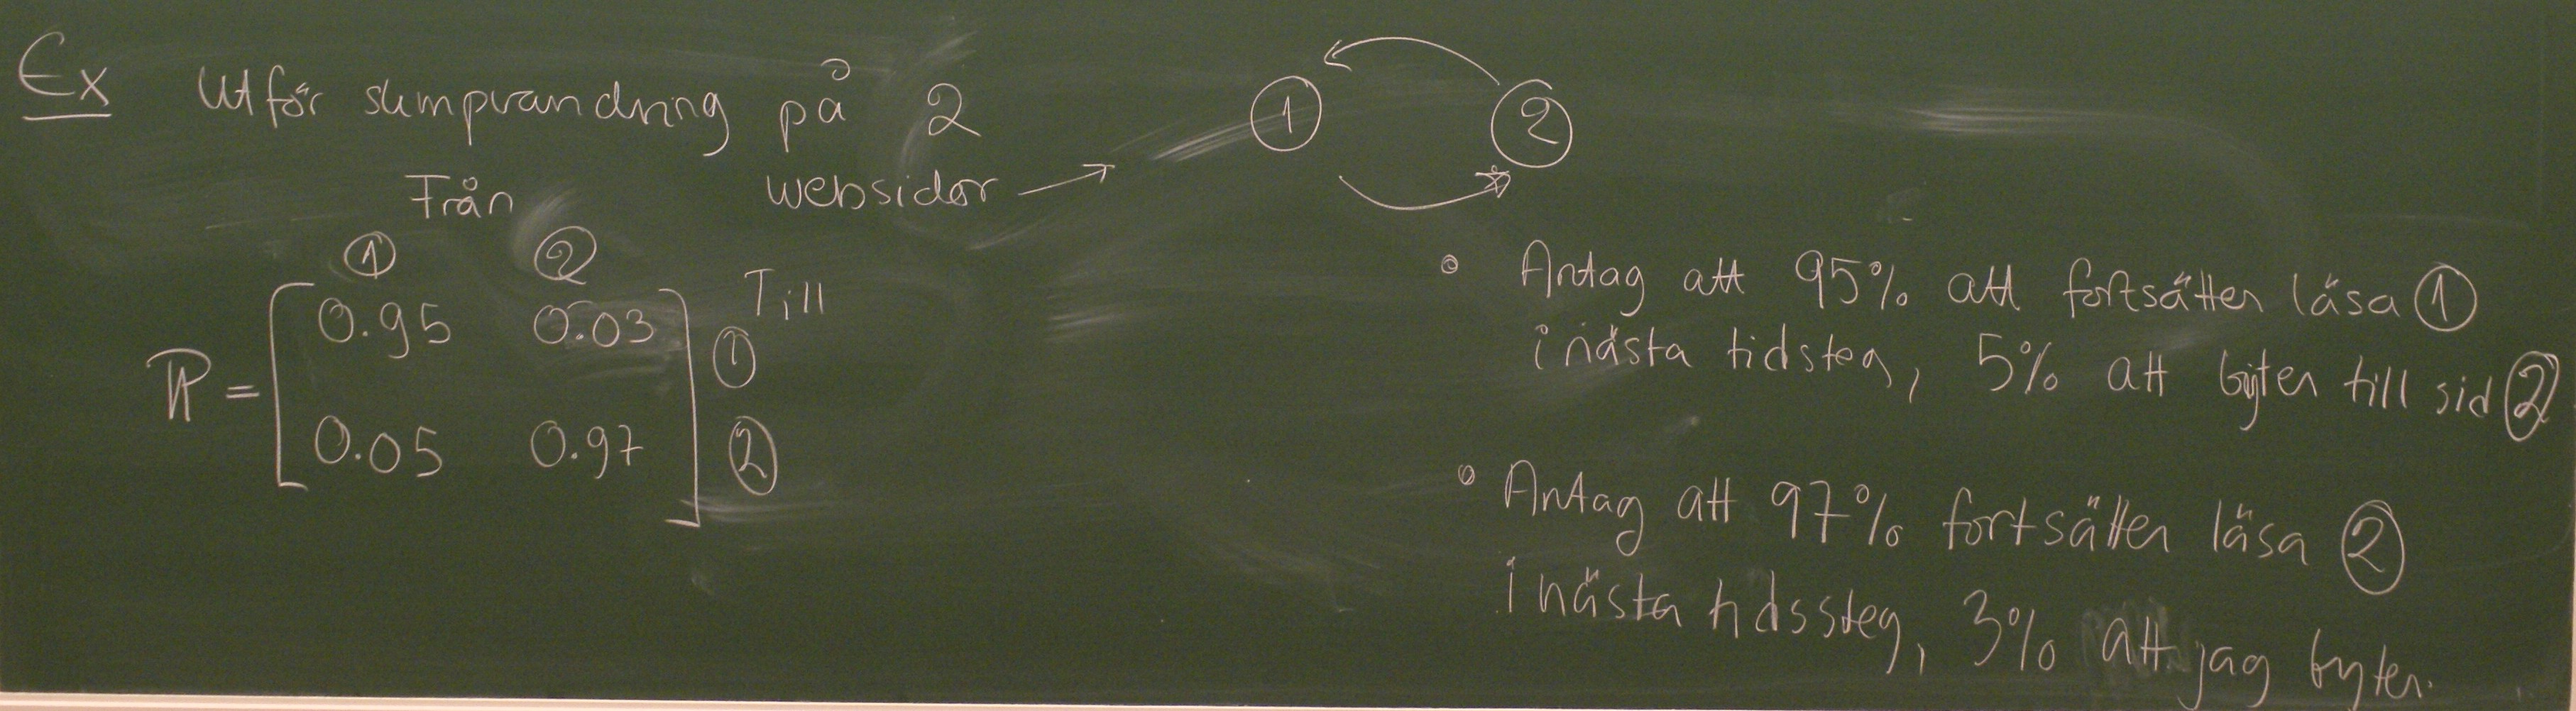 Ex Utför slumpvandring på 2
websidor →
① ②
Från
① ②
Till
P = [ 0.95 0.03 ] ①
[ 0.05 0.97 ] ②
• Antag att 95% att fortsätter läsa ①
i nästa tidsteg, 5% att byter till sid ②
• Antag att 97% fortsätter läsa ②
i nästa tidssteg, 3% att jag byter.